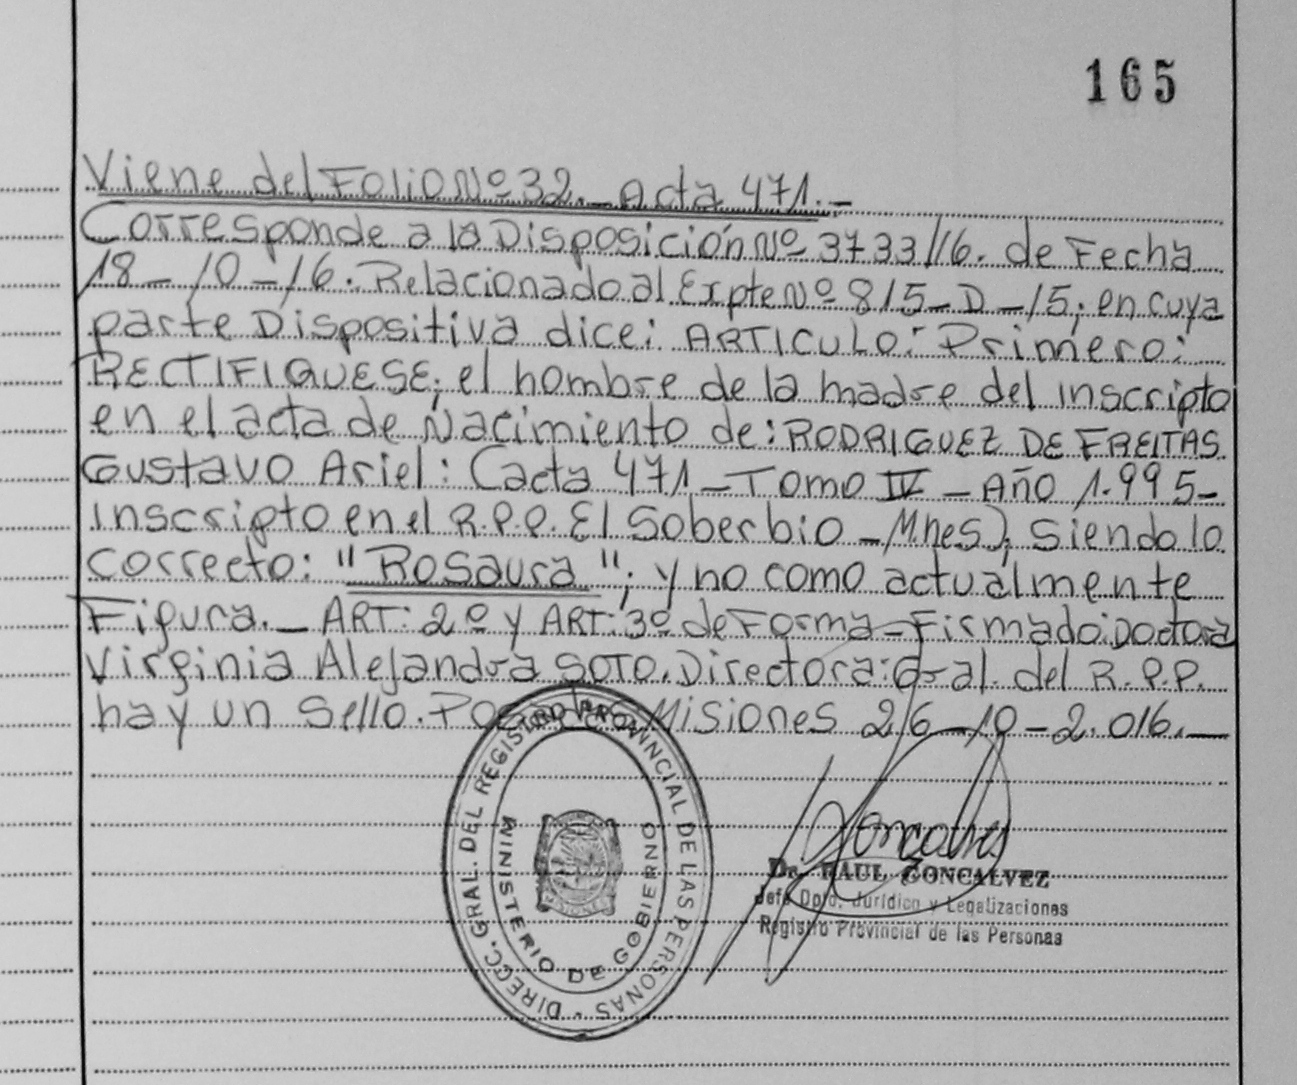 165
Viene del Folio Nº 32._ Acta 471._
Corresponde a la Disposición Nº 3733/16. de Fecha
18_10_16. Relacionado al Expte Nº 815_D_15; en cuya
parte Dispositiva dice: ARTICULO: Primero:
RECTIFIQUESE; el nombre de la madre del inscripto
en el acta de Nacimiento de: RODRIGUEZ DE FREITAS
Gustavo Ariel: (acta 471_Tomo IV_Año 1.995_
inscripto en el R.P.P. El Soberbio_Mnes); Siendo lo
correcto: "Rosaura"; y no como actualmente
Figura._ ART: 2º y ART: 3º de Forma_Firmado: Doctora
Virginia Alejandra SOTO. Directora: Gral. del R.P.P.
hay un Sello. Misiones 26_10_2.016._
DIRECC. GRAL. DEL REGISTRO PROVINCIAL DE LAS PERSONAS
MINISTERIO DE GOBIERNO
MISIONES
Goncalves
Dr. RAUL GONCALVEZ
Jefe Dpto. Jurídico y Legalizaciones
Registro Provincial de las Personas